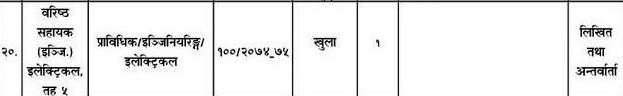 वरिष्ठ
सहायक
२०. (इञ्जि.) प्राविधिक/इञ्जिनियरिङ्ग/ १००/२०७४_७५ खुला १ लिखित
इलेक्ट्रिकल, इलेक्ट्रिकल तथा
तह ५ अन्तर्वार्ता